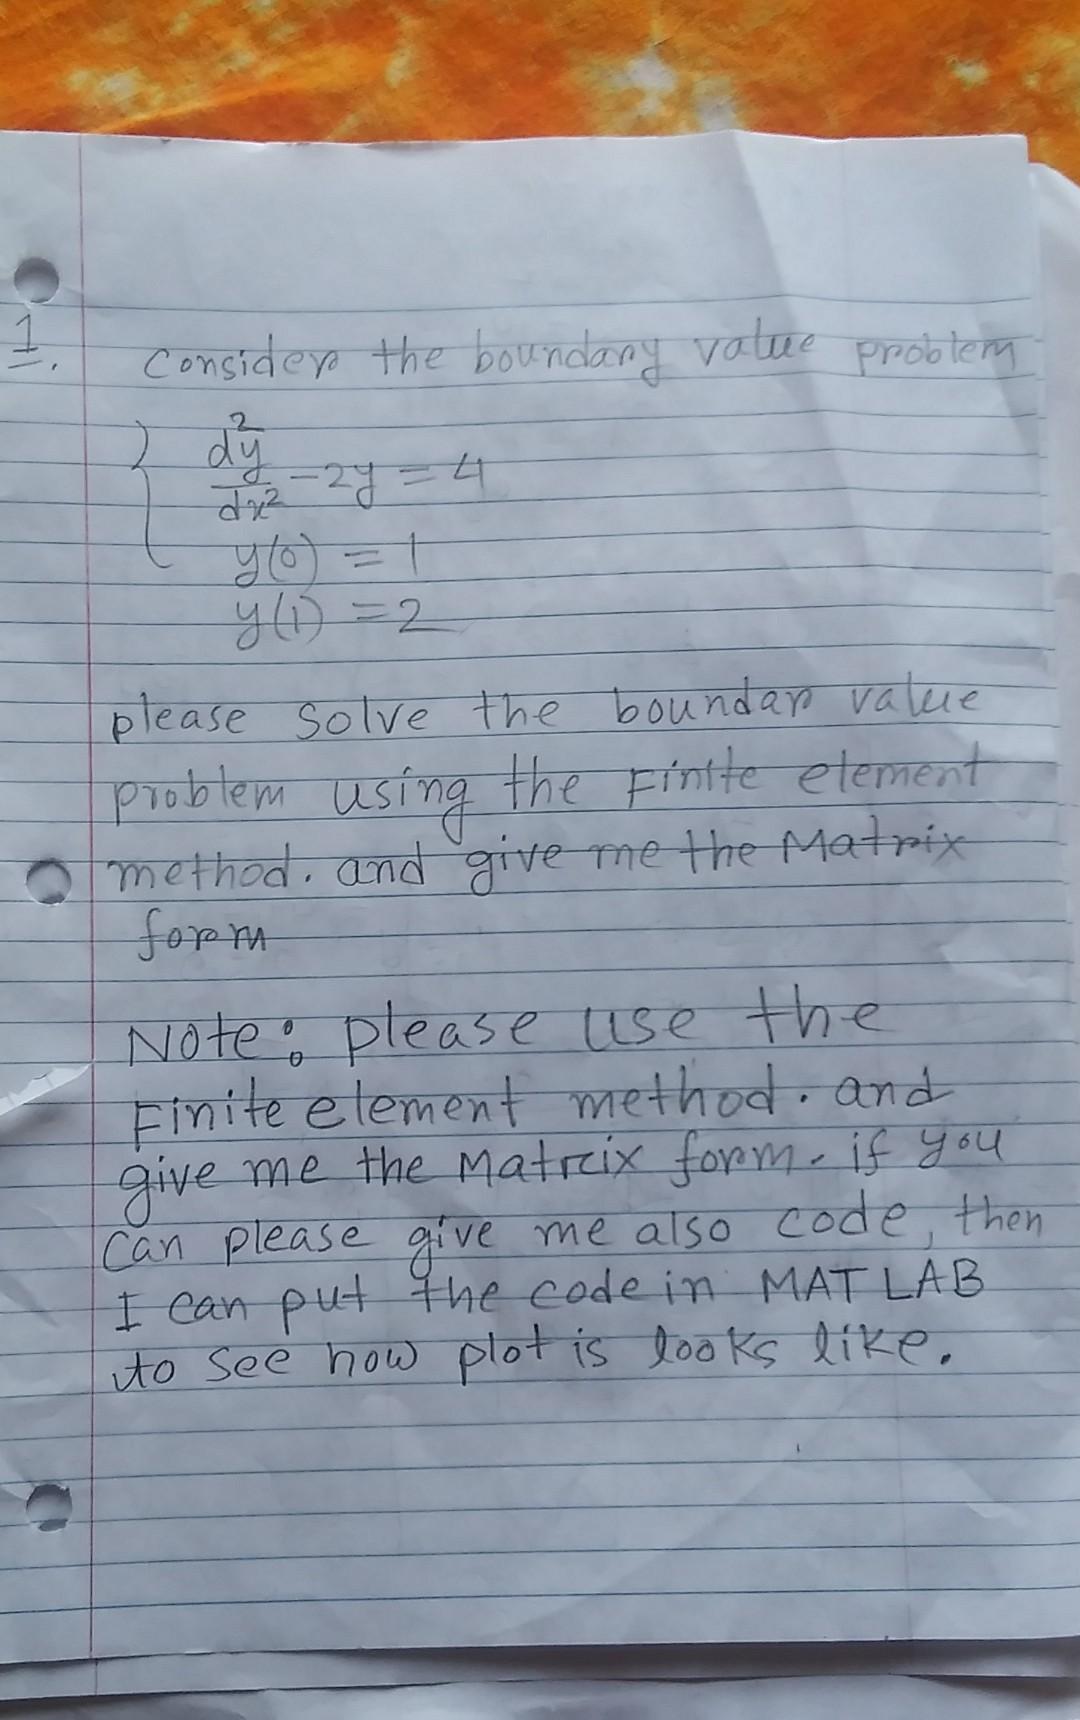 1. Consider the boundary value problem
d²y/dx² - 2y = 4
y(0) = 1
y(1) = 2
please solve the boundar value
problem using the Finite element
method. and give me the Matrix
form
Note: please use the
Finite element method. and
give me the Matrix form. if you
can please give me also code, then
I can put the code in MATLAB
to see how plot is looks like.